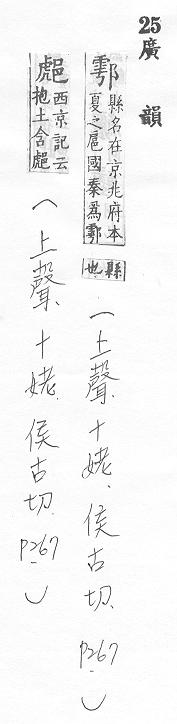 25廣韻
鄠
縣名在京兆府本
夏之扈國秦爲鄠
縣
也
(上聲、十姥、侯古切、P267)
西京記云
抱土含
(上聲、十姥、侯古切、P267)